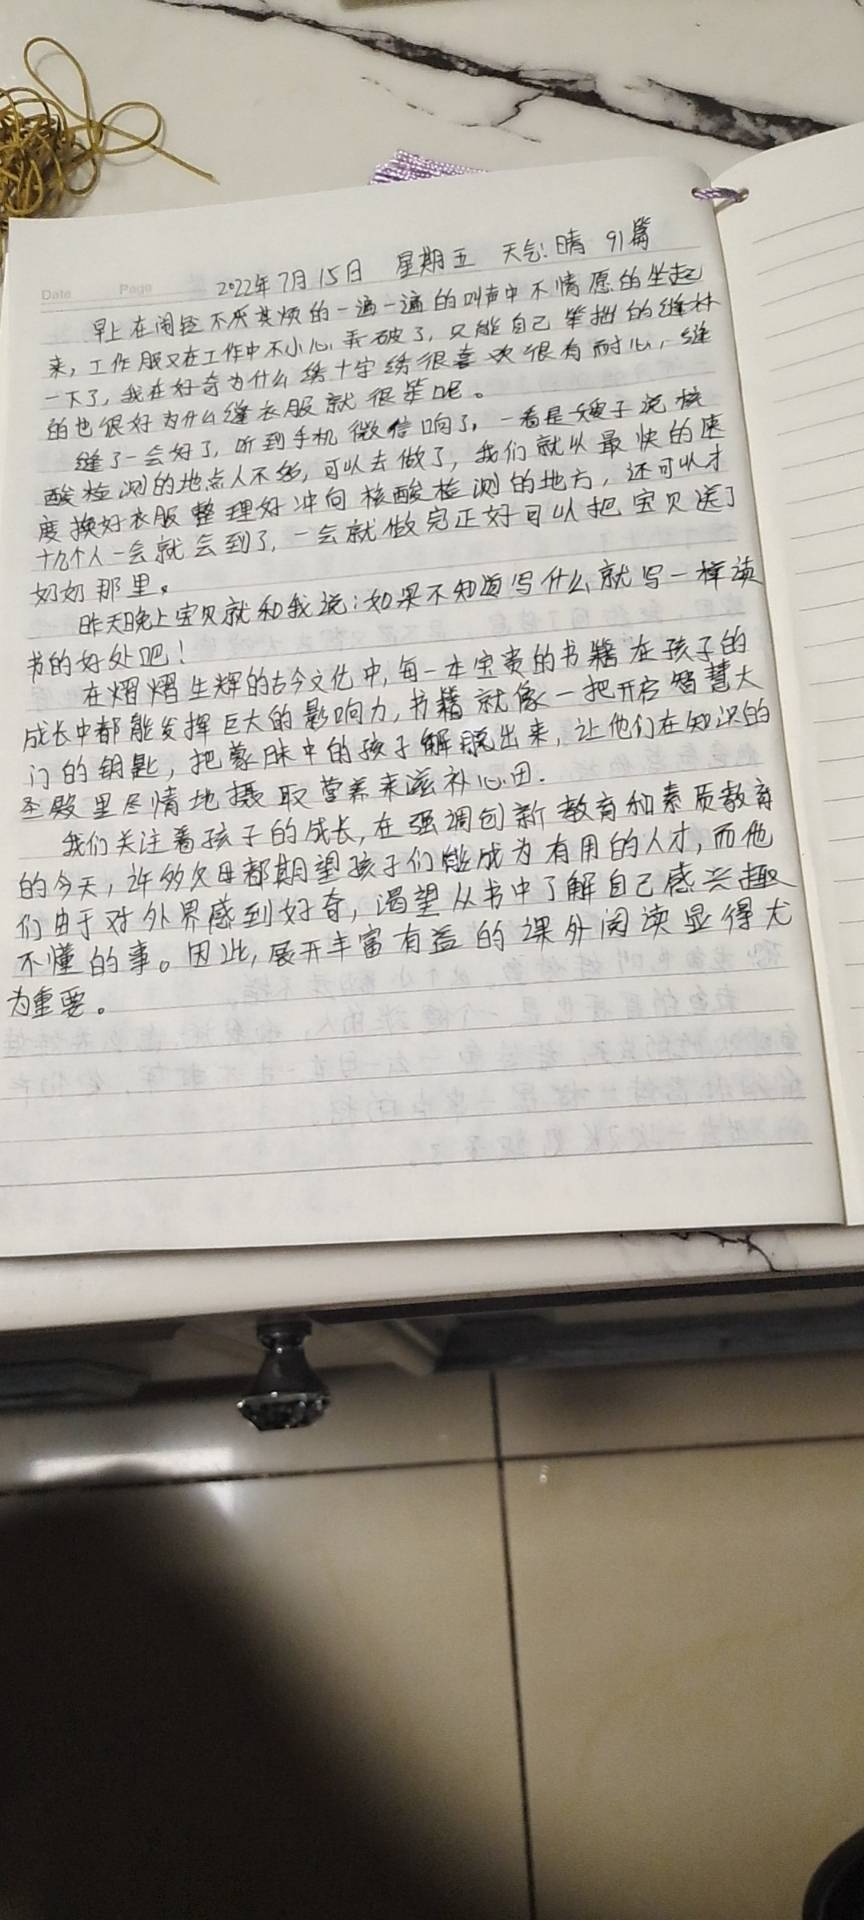 Date Page
2022年7月15日 星期五 天气:晴 91篇
早上在闹铃不厌其烦的一遍一遍的叫声中不情愿的坐起
来,工作服又在工作中不小心弄破了,只能自己笨拙的缝补
一下了,我在好奇为什么绣十字绣很喜欢很有耐心,缝
的也很好为什么缝衣服就很笨呢。
缝了一会好了,听到手机微信响了,一看是嫂子说核
酸检测的地点人不多,可以去做了,我们就以最快的速
度换好衣服整理好冲向核酸检测的地方,还可以才
十几个人一会就会到了,一会就做完正好可以把宝贝送了
奶奶那里。
昨天晚上宝贝就和我说:如果不知道写什么就写一样读
书的好处吧!
在熠熠生辉的古今文化中,每一本宝贵的书籍在孩子的
成长中都能发挥巨大的影响力,书籍就像一把开启智慧大
门的钥匙,把蒙昧中的孩子解脱出来,让他们在知识的
圣殿里尽情地摄取营养来滋补心田.
我们关注着孩子的成长,在强调创新教育和素质教育
的今天,许多父母都期望孩子们能成为有用的人才,而他
们由于对外界感到好奇,渴望从书中了解自己感兴趣
不懂的事。因此,展开丰富有益的课外阅读显得尤
为重要。